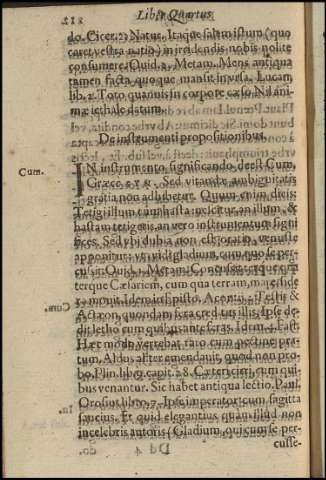 218 Liber Quartus
do. Cicer. 2) Natur. Itaque salem istum (quo
caret vestra natio) in irridendis nobis nolite
consumere. Ouid. 2. Metam. Mens antiqua
tamen facta quoque mansit in vrsa. Lucan.
lib. 2. Toto quamuis in corpore cæso, Nil ani-
mæ lethale datum.
De instrumenti propositionibus.
Cum.
IN instrumento significando, deest Cum,
Græce. Sed vitandæ ambiguitatis
gratia non adhibetur. Quum enim dicis:
Tetigi illum cum hasta: nescitur an illum, &
hastam tetigeris, an vero instrumentum signi
fices. Sed vbi dubia non est oratio, venuste
apponitur: vt, vidi gladium, cum quo te per-
cusit. Ouid. 1. Metam. Concussit terque qua
terque Cæsariem, cum qua terram, mare, side
Cum.
ra mouit. Idem in Episto. Acontij. Testis &
Actæon, quondam fera creditus illis, Ipse de-
dit letho cum quibus ante feras. Idem 4. Fast.
Hæc modo vertebat raro cum pectine pra-
tum. Aldus aliter emendauit, quod non pro-
bo. Plin. lib. 9. capit. 28. Cæteri cerui, cum qui
bus venantur. Sic habet antiqua lectio. Paul.
In.
Orosius libro. 7. Ipse imperator cum sagitta
saucius. Et quid elegantius quam illud non
incelebris autoris (Gladium, qui cum se per-
Dd 4 cusse-
do.